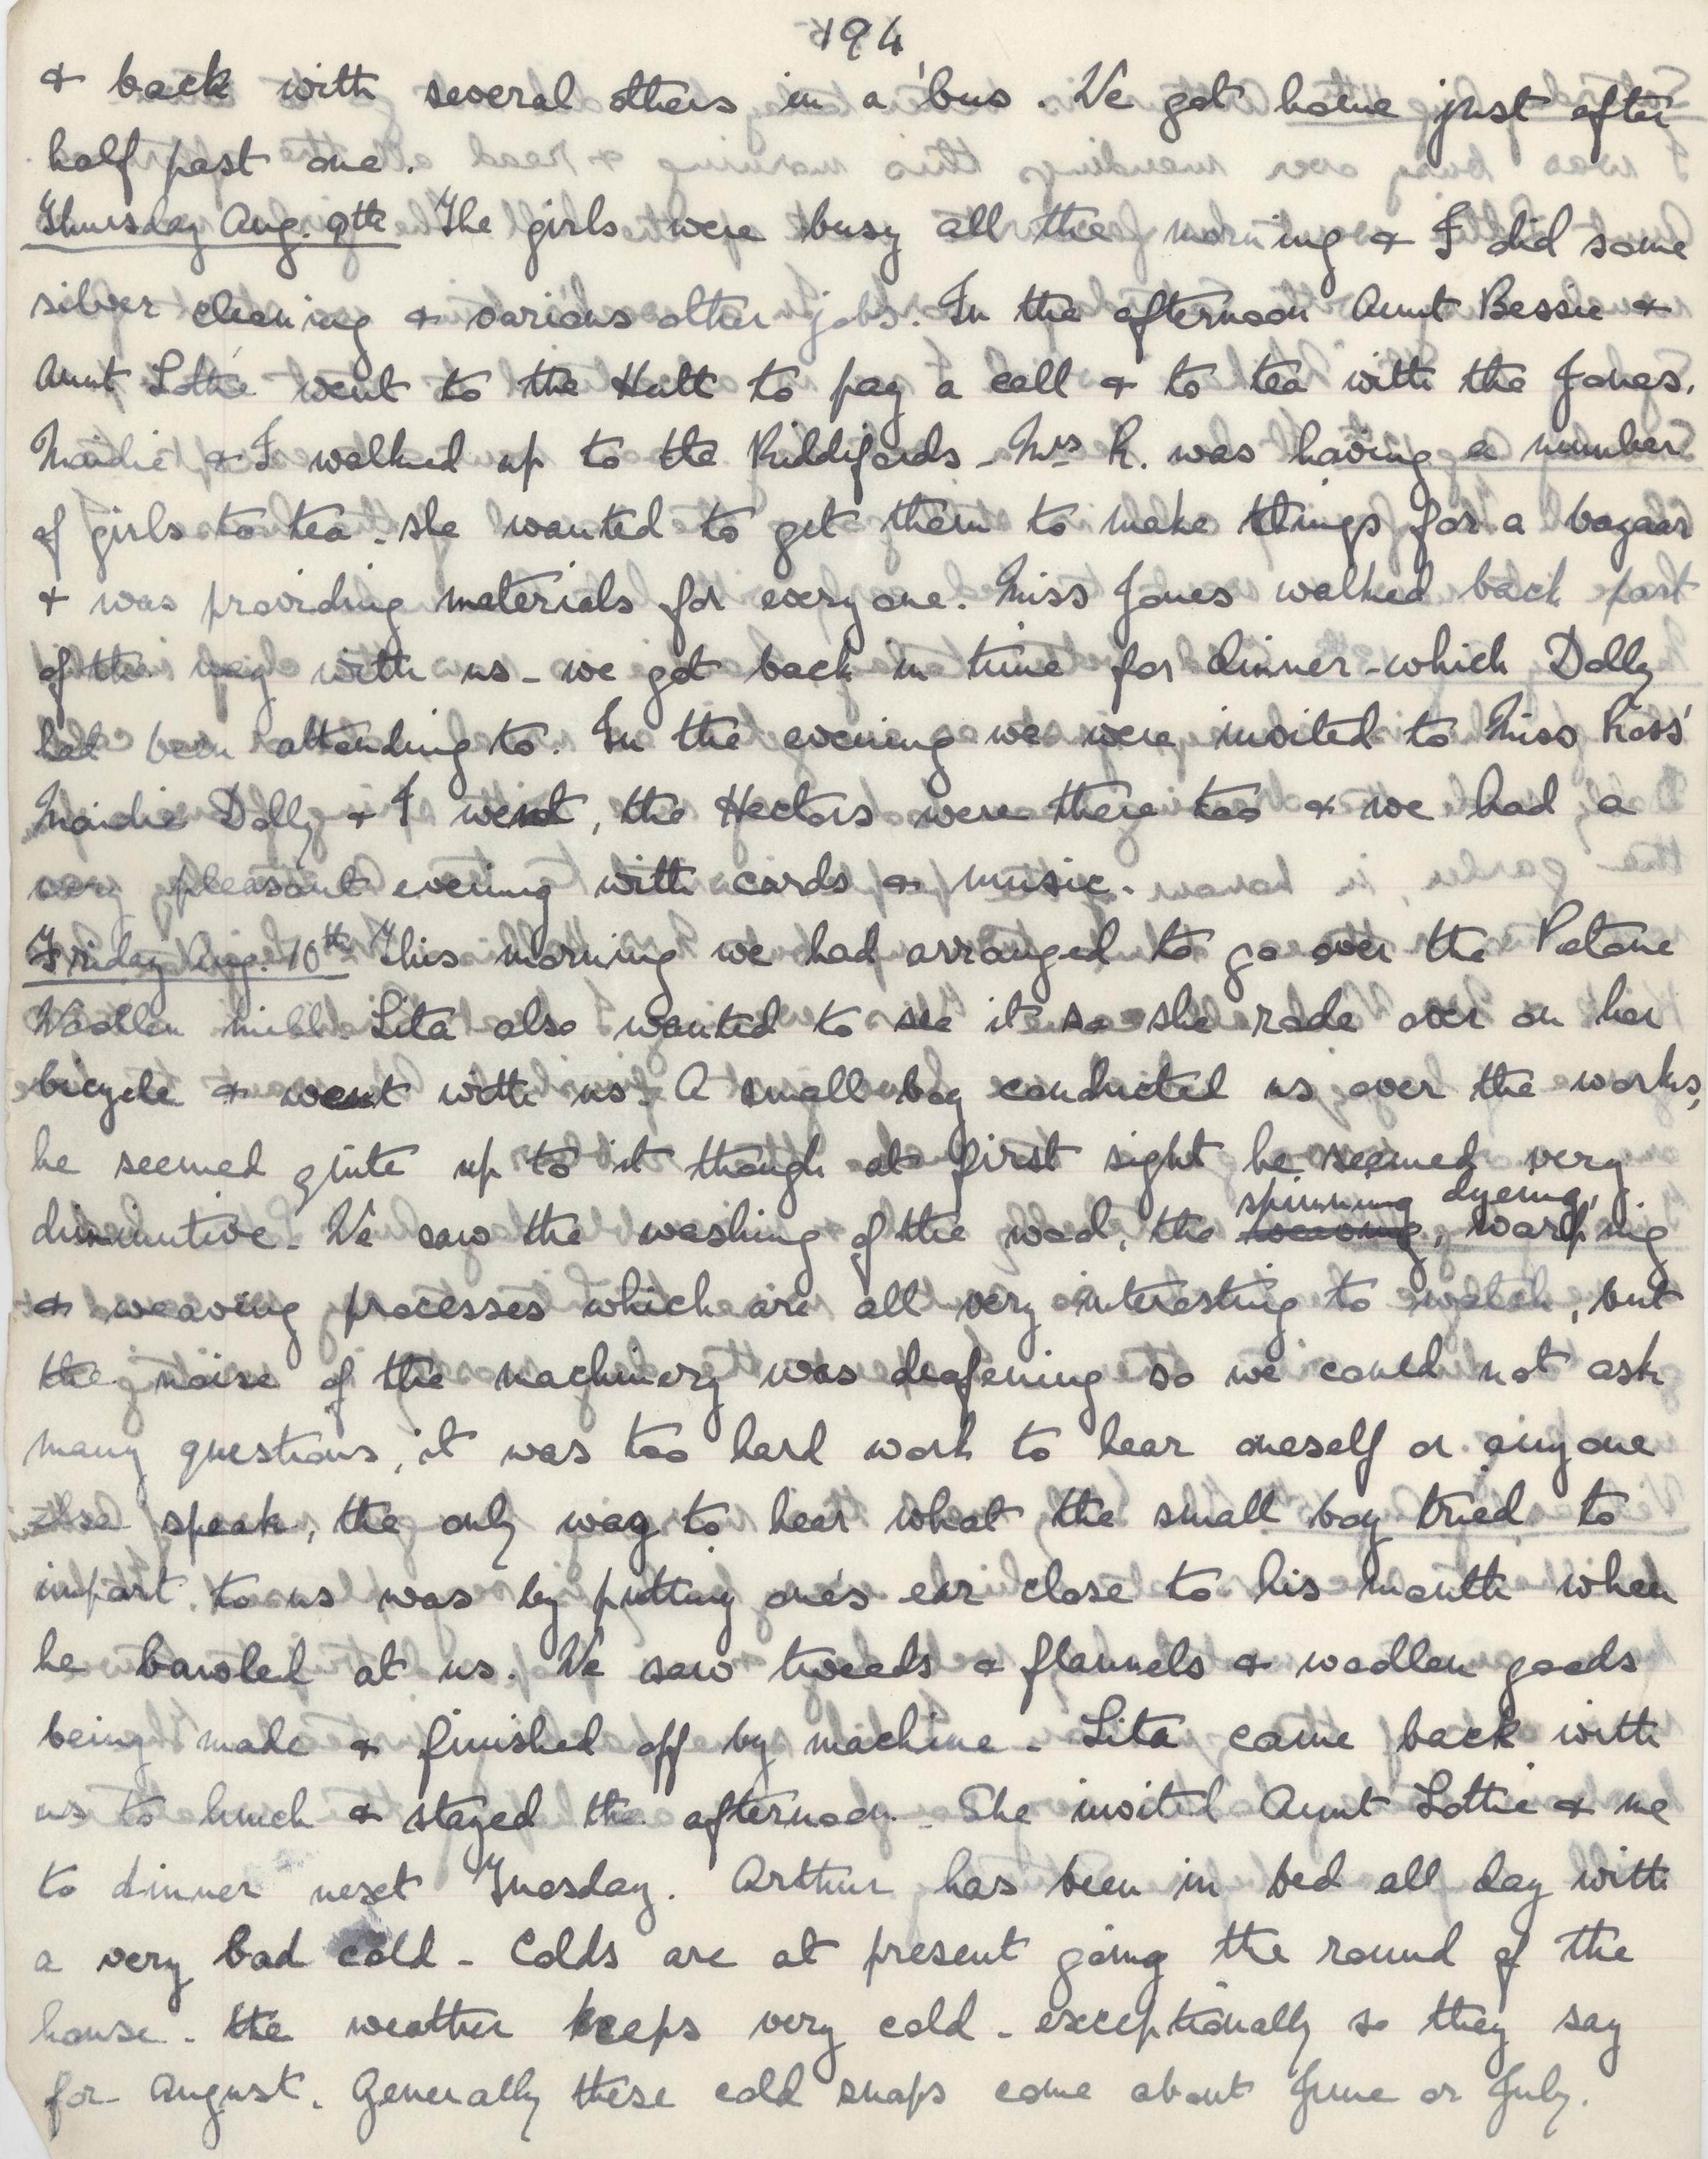 194
& back with several others in a 'bus. We got home just after
half past one.
Thursday Aug. 9th The girls were busy all the morning & I did some
silver cleaning & various other jobs. In the afternoon Aunt Bessie &
Aunt Lottie went to the Hutt to pay a call & to tea with the Jones.
Maidie & I walked up to the Riddifords - Mrs R. was having a number
of girls to tea - she wanted to get them to make things for a bazaar
& was providing materials for everyone. Miss Jones walked back part
of the way with us - we got back in time for dinner - which Dolly
had been attending to. In the evening we were invited to Miss Ross'
Maidie Dolly & I went, the Hectors were there too & we had a
very pleasant evening with cards & music.
Friday Aug. 10th This morning we had arranged to go over the Petone
Woollen mill. Lita also wanted to see it so she rode over on her
bicycle & went with us. A small boy conducted us over the works,
he seemed quite up to it though at first sight he seemed very
spinning dyeing,
diminutive - We saw the washing of the wool, the weaving, warping
& weaving processes which are all very interesting to watch, but
the noise of the machinery was deafening so we could not ask
many questions, it was too hard work to hear oneself or anyone
else speak, the only way to hear what the small boy tried to
impart to us was by putting one's ear close to his mouth when
he bawled at us. We saw tweeds & flannels & woollen goods
being made & finished off by machine - Lita came back with
us to lunch & stayed the afternoon - She invited Aunt Lottie & me
to dinner next Tuesday. Arthur has been in bed all day with
a very bad cold - Colds are at present going the round of the
house - the weather keeps very cold - exceptionally so they say
for August. Generally these cold snaps come about June or July.